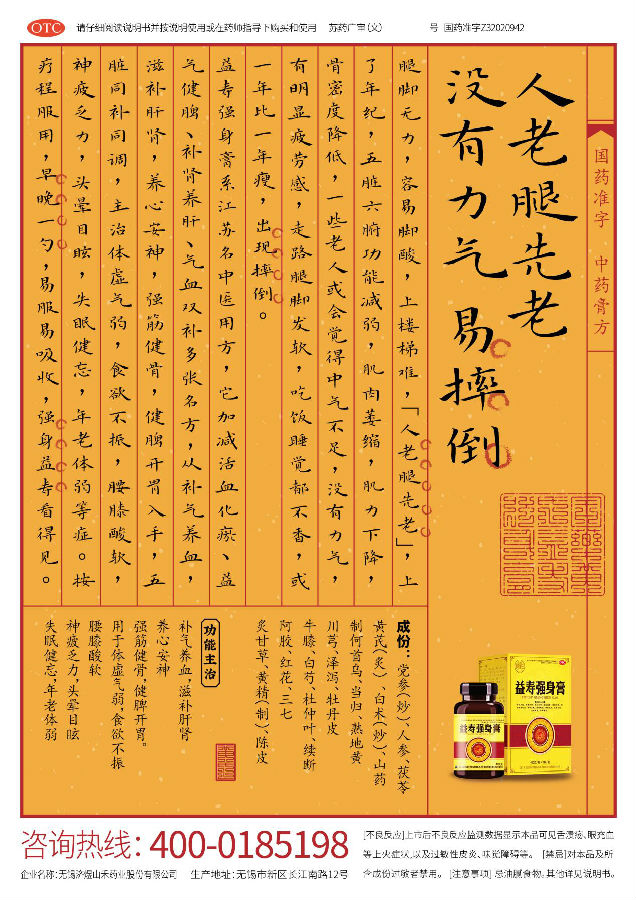 OTC 请仔细阅读说明书并按说明使用或在药师指导下购买和使用 苏药广审(文) 号 国药准字Z32020942
国药准字 中药膏方
人老腿先老
没有力气易摔倒
腿脚无力，容易脚酸，上楼梯难，「人老腿先老」，上
了年纪，五脏六腑功能减弱，肌肉萎缩，肌力下降，
骨密度降低，一些老人或会觉得中气不足，没有力气，
有明显疲劳感，走路腿脚发软，吃饭睡觉都不香，或
一年比一年瘦，出现摔倒。
益寿强身膏系江苏名中医用方，它加减活血化瘀、益
气健脾、补肾养肝、气血双补多张名方，从补气养血，
滋补肝肾，养心安神，强筋健骨，健脾开胃入手，五
脏同补同调，主治体虚气弱，食欲不振，腰膝酸软，
神疲乏力，头晕目眩，失眠健忘，年老体弱等症。按
疗程服用，早晚一勺，易服易吸收，强身益寿看得见。
成份：党参(炒)、人参、茯苓
黄芪(炙)、白术(炒)、山药
制何首乌、当归、熟地黄
川芎、泽泻、牡丹皮
牛膝、白芍、杜仲叶、续断
阿胶、红花、三七
炙甘草、黄精(制)、陈皮
功能主治
补气养血，滋补肝肾
养心安神
强筋健骨，健脾开胃。
用于体虚气弱，食欲不振
腰膝酸软
神疲乏力，头晕目眩
失眠健忘，年老体弱
益寿强身膏
益寿强身膏
咨询热线：400-0185198
企业名称：无锡济煜山禾药业股份有限公司 生产地址：无锡市新区长江南路12号
[不良反应]上市后不良反应监测数据显示本品可见舌溃疡、眼充血
等上火症状，以及过敏性皮炎、味觉障碍等。 [禁忌]对本品及所
含成份过敏者禁用。 [注意事项] 忌油腻食物。其他详见说明书。